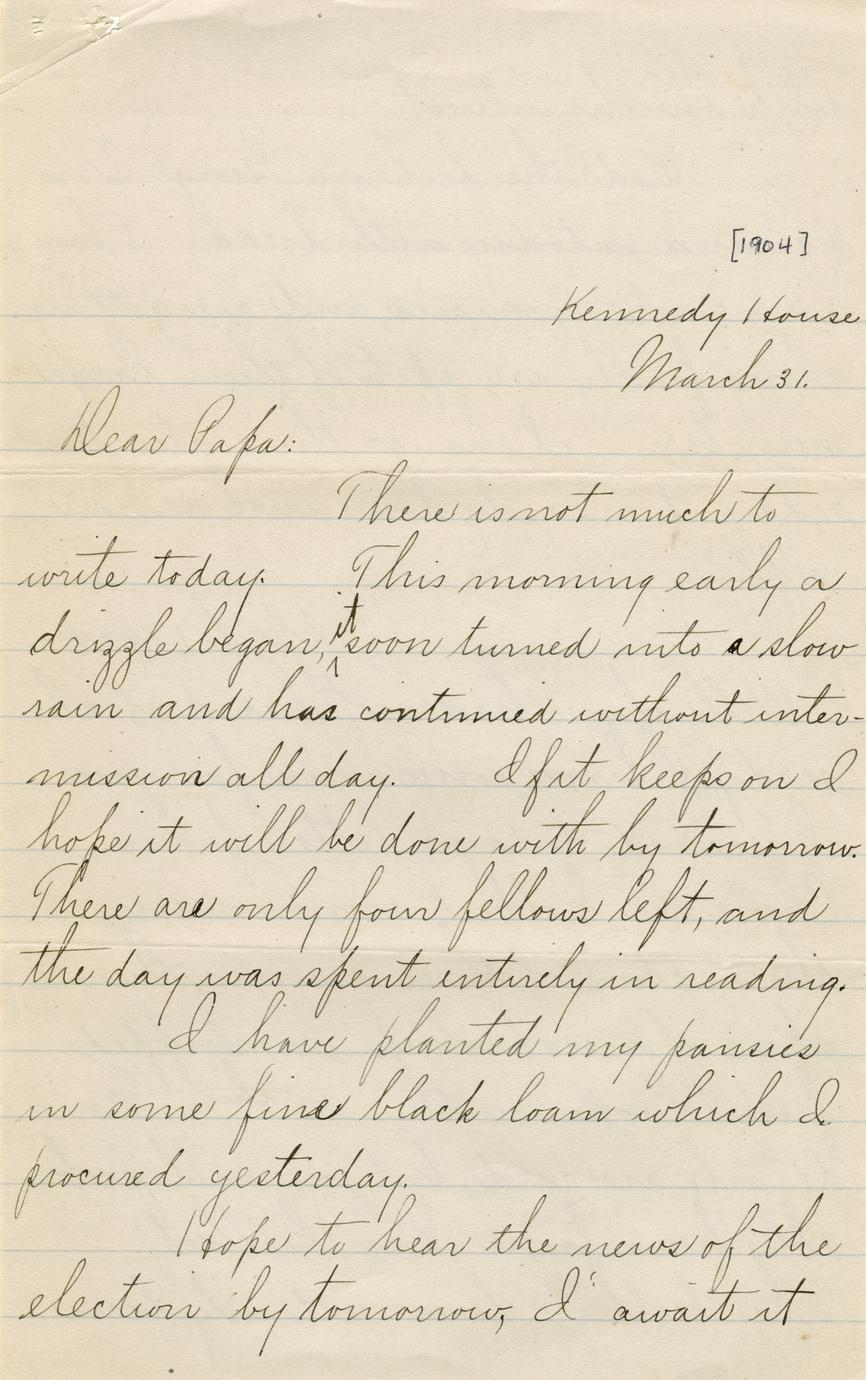 [1904]
Kennedy House
March 31.
Dear Papa:
There is not much to
write today. This morning early a
drizzle began, it soon turned into a slow
rain and has continued without inter-
mission all day. If it keeps on I
hope it will be done with by tomorrow.
There are only four fellows left, and
the day was spent entirely in reading.
I have planted my pansies
in some fine black loam which I
procured yesterday.
Hope to hear the news of the
election by tomorrow, I await it